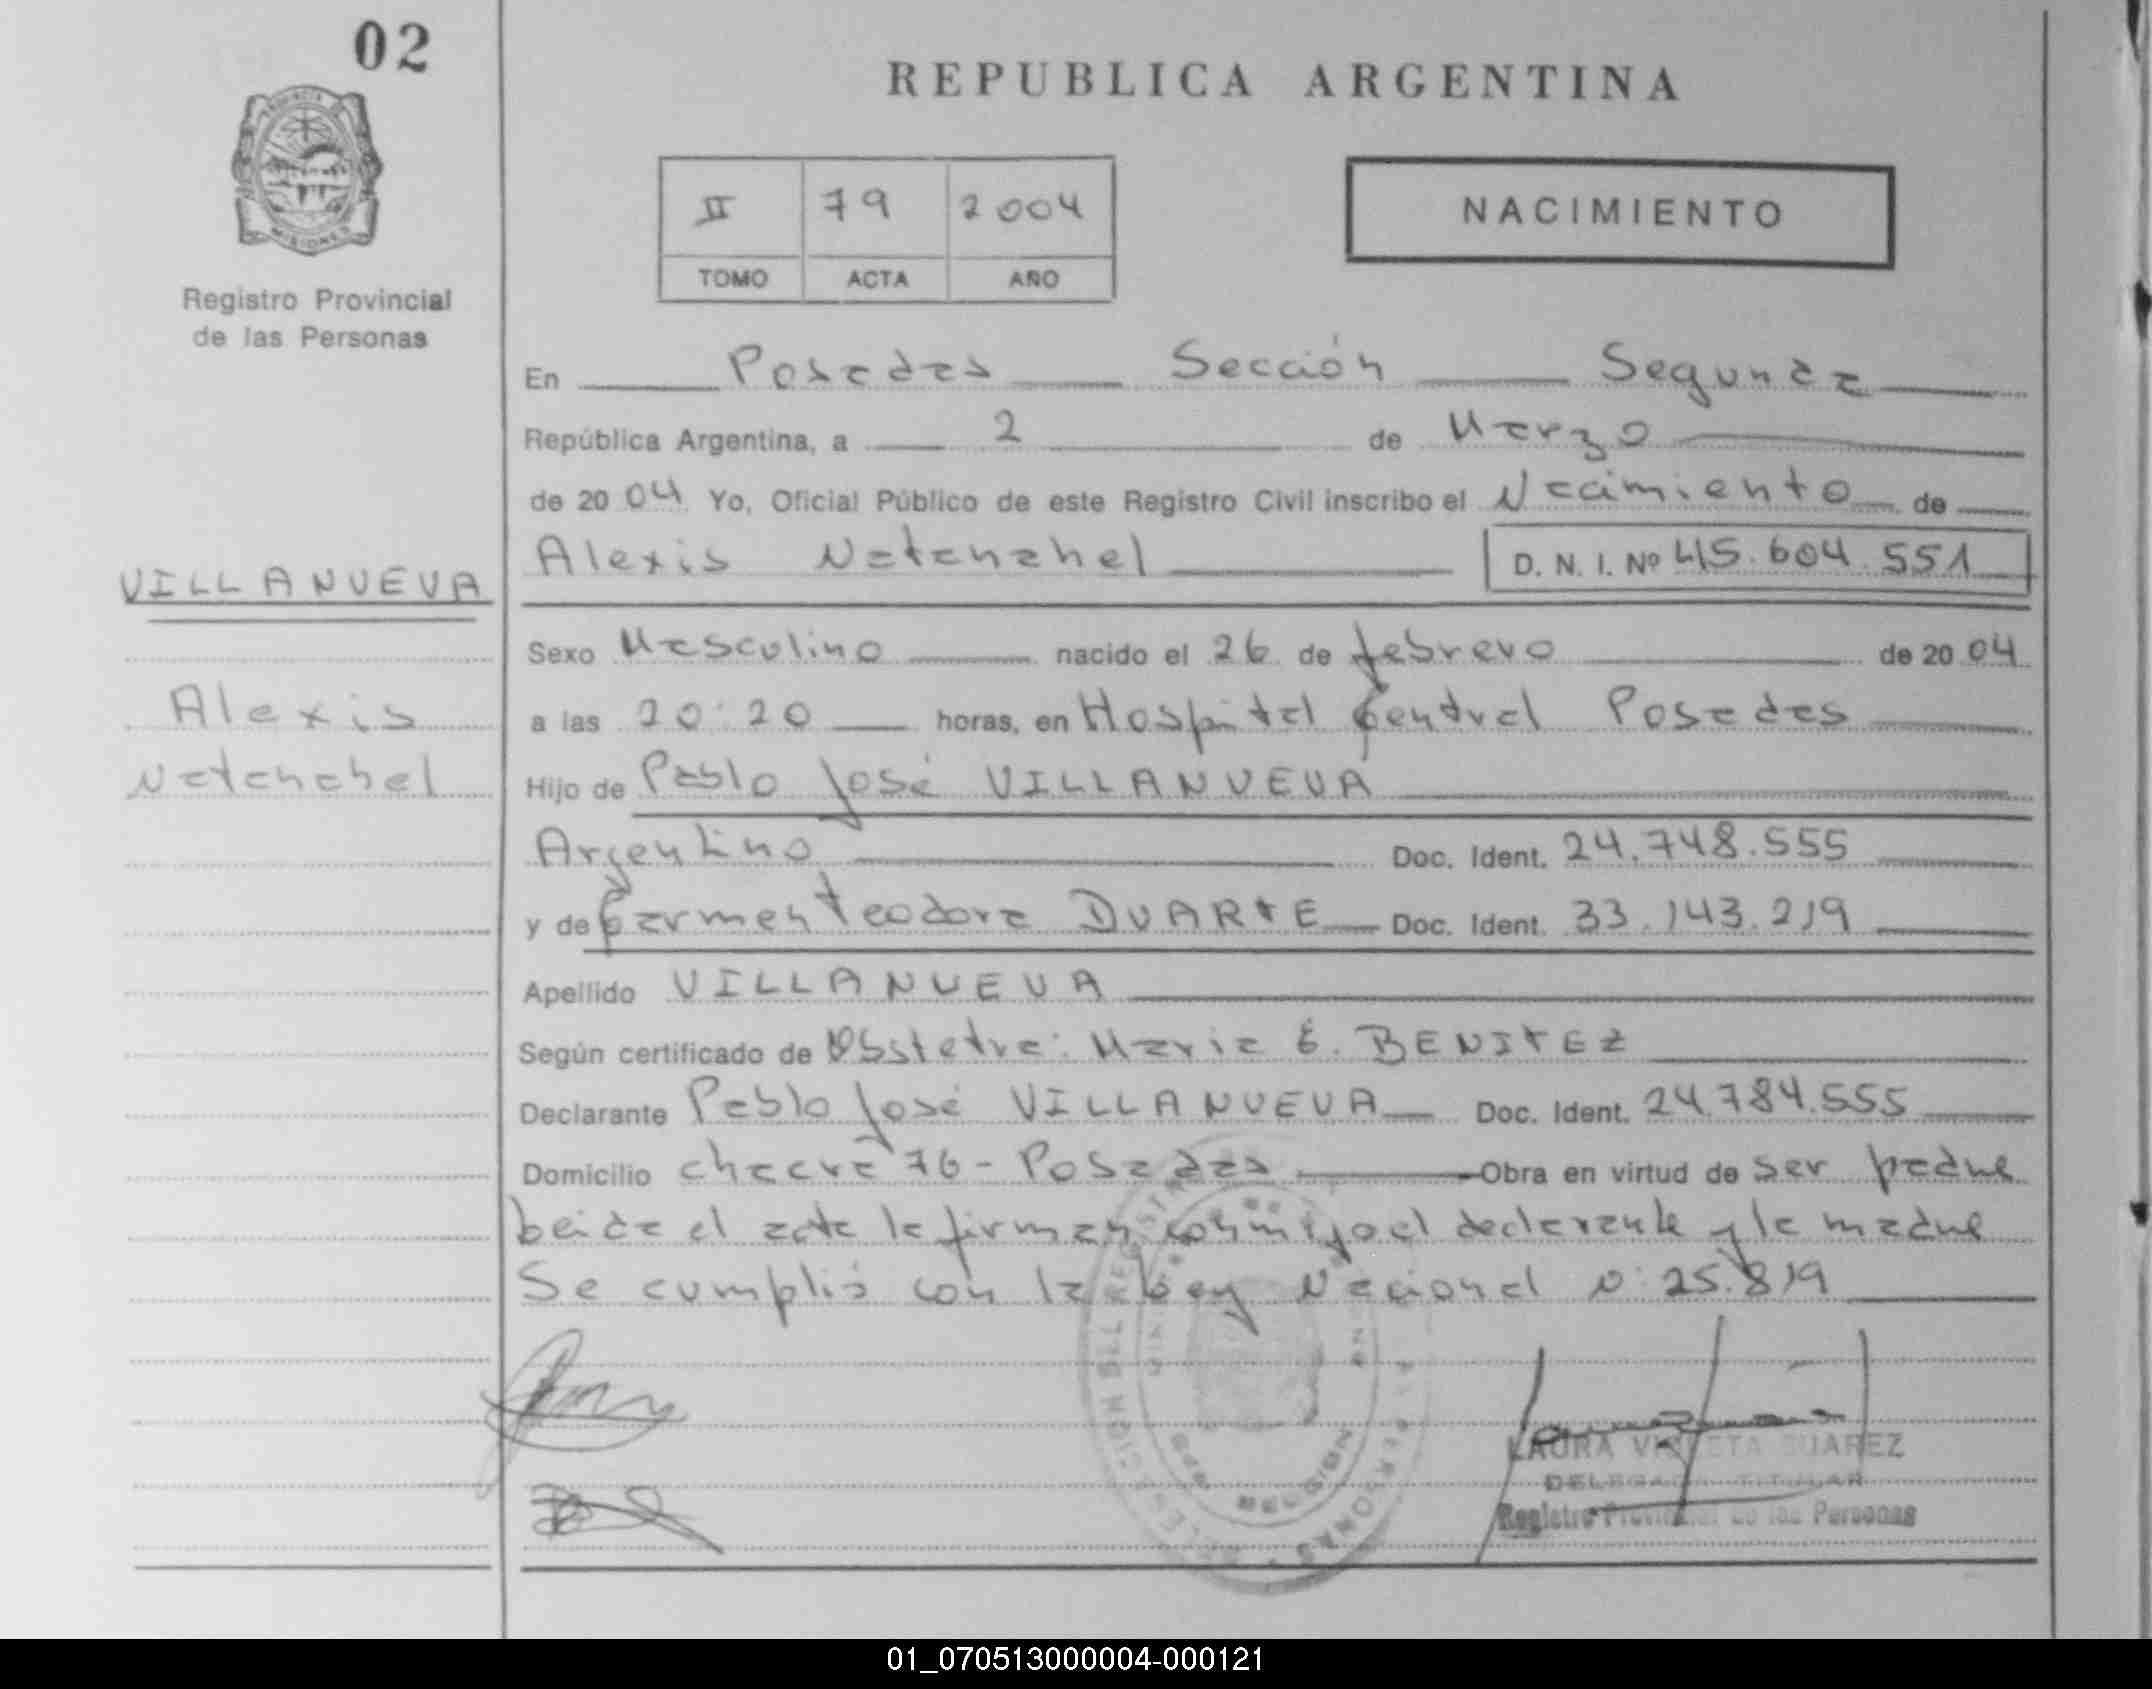 02
REPUBLICA ARGENTINA
MISIONES
Registro Provincial
de las Personas
II 79 2004
TOMO ACTA AÑO
NACIMIENTO
En Posadas Sección Segunda
República Argentina, a 2 de Marzo
de 2004 Yo, Oficial Público de este Registro Civil inscribo el Nacimiento de
VILLANUEVA
Alexis Natanahel D. N. I. Nº 45.604.551
Sexo Masculino nacido el 26 de febrero de 2004
Alexis
Natanahel
a las 20:20 horas, en Hospital Central Posadas
Hijo de Pablo José VILLANUEVA
Argentino Doc. Ident. 24.748.555
y de Carmen Teodora DUARTE Doc. Ident. 33.143.219
Apellido VILLANUEVA
Según certificado de Obstetra: Maria E. BENITEZ
Declarante Pablo José VILLANUEVA Doc. Ident. 24.784.555
Domicilio chacra 76 - Posadas Obra en virtud de ser padre
leida el acta la firman conmigo el declarante y la madre
Se cumplió con la Ley Nacional N: 25.819
LAURA VIOLETA SUAREZ
DELEGADA TITULAR
Registro Provincial de las Personas
01_070513000004-000121